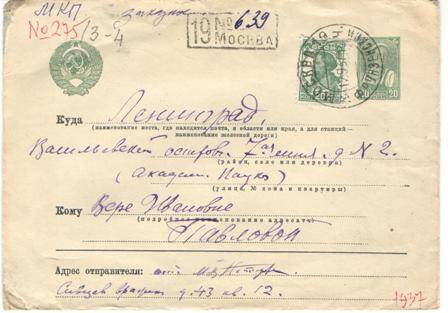 МКП
№275/3-4
заказное
19 № 639
МОСКВА
МОСКВА
20 20
Куда Ленинград,
(наименование места, где находится почта, и области или края, а для станций —
наименование железной дороги)
Васильевский остров. 7ая линия. д № 2.
(район, село или деревня)
(Академия Наук)
(улица, № дома и квартиры)
Кому Вере Ивановне
(подробное наименование адресата)
Павловой
Адрес отправителя:
Сивцев Вражек д. 43 кв. 12.
1937